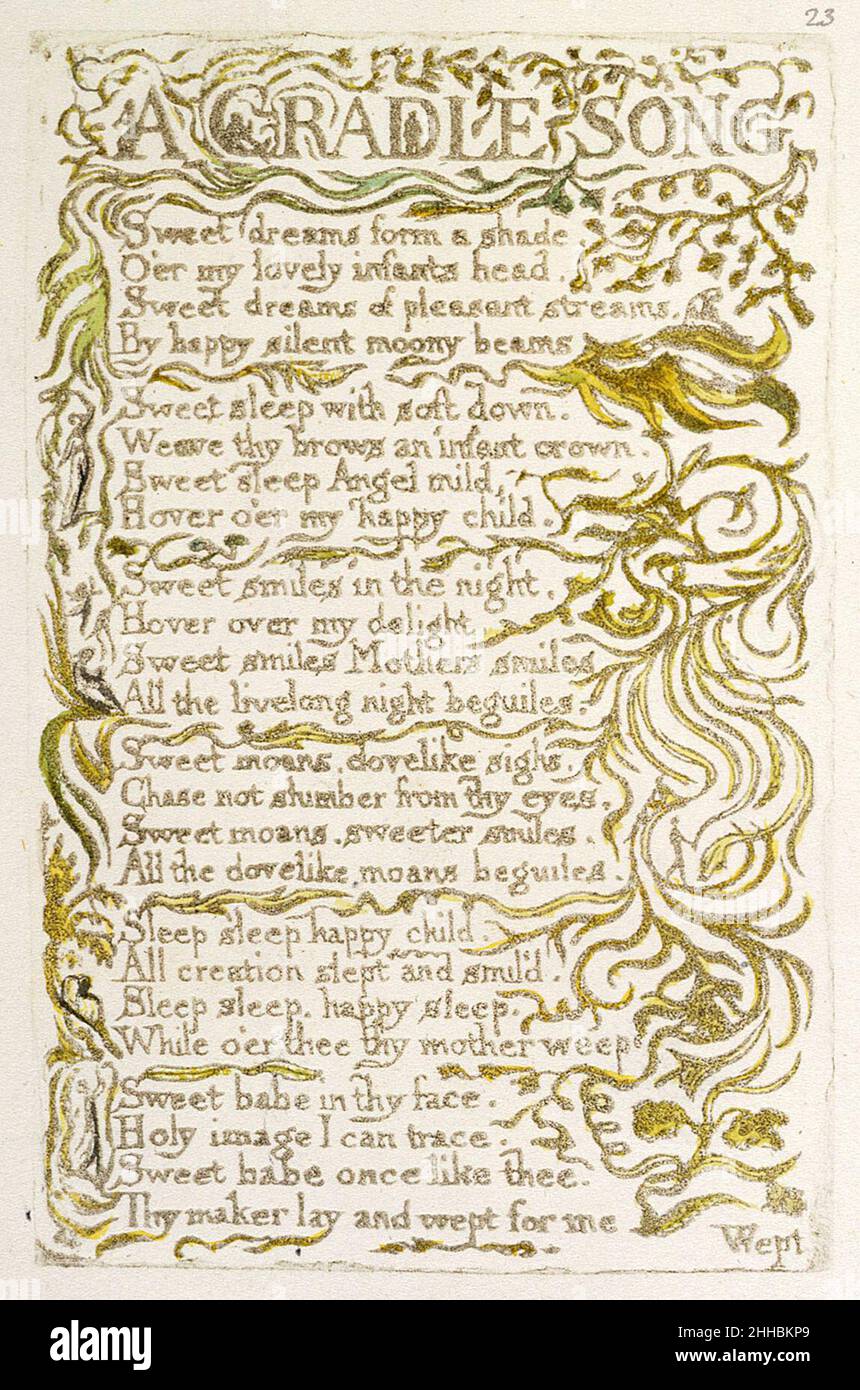 23
A CRADLE SONG
Sweet dreams form a shade.
O'er my lovely infants head.
Sweet dreams of pleasant streams.
By happy silent moony beams
Sweet sleep with soft down.
Weave thy brows an infant crown.
Sweet sleep Angel mild,
Hover o'er my happy child.
Sweet smiles in the night.
Hover over my delight
Sweet smiles Mothers smiles
All the livelong night beguiles.
Sweet moans, dovelike sighs.
Chase not slumber from thy eyes.
Sweet moans, sweeter smiles.
All the dovelike moans beguiles.
Sleep sleep happy child.
All creation slept and smil'd.
Sleep sleep, happy sleep.
While o'er thee thy mother weep
Sweet babe in thy face.
Holy image I can trace.
Sweet babe once like thee.
Thy maker lay and wept for me
Wept
alamy
Image ID: 2HHBKP9
www.alamy.com